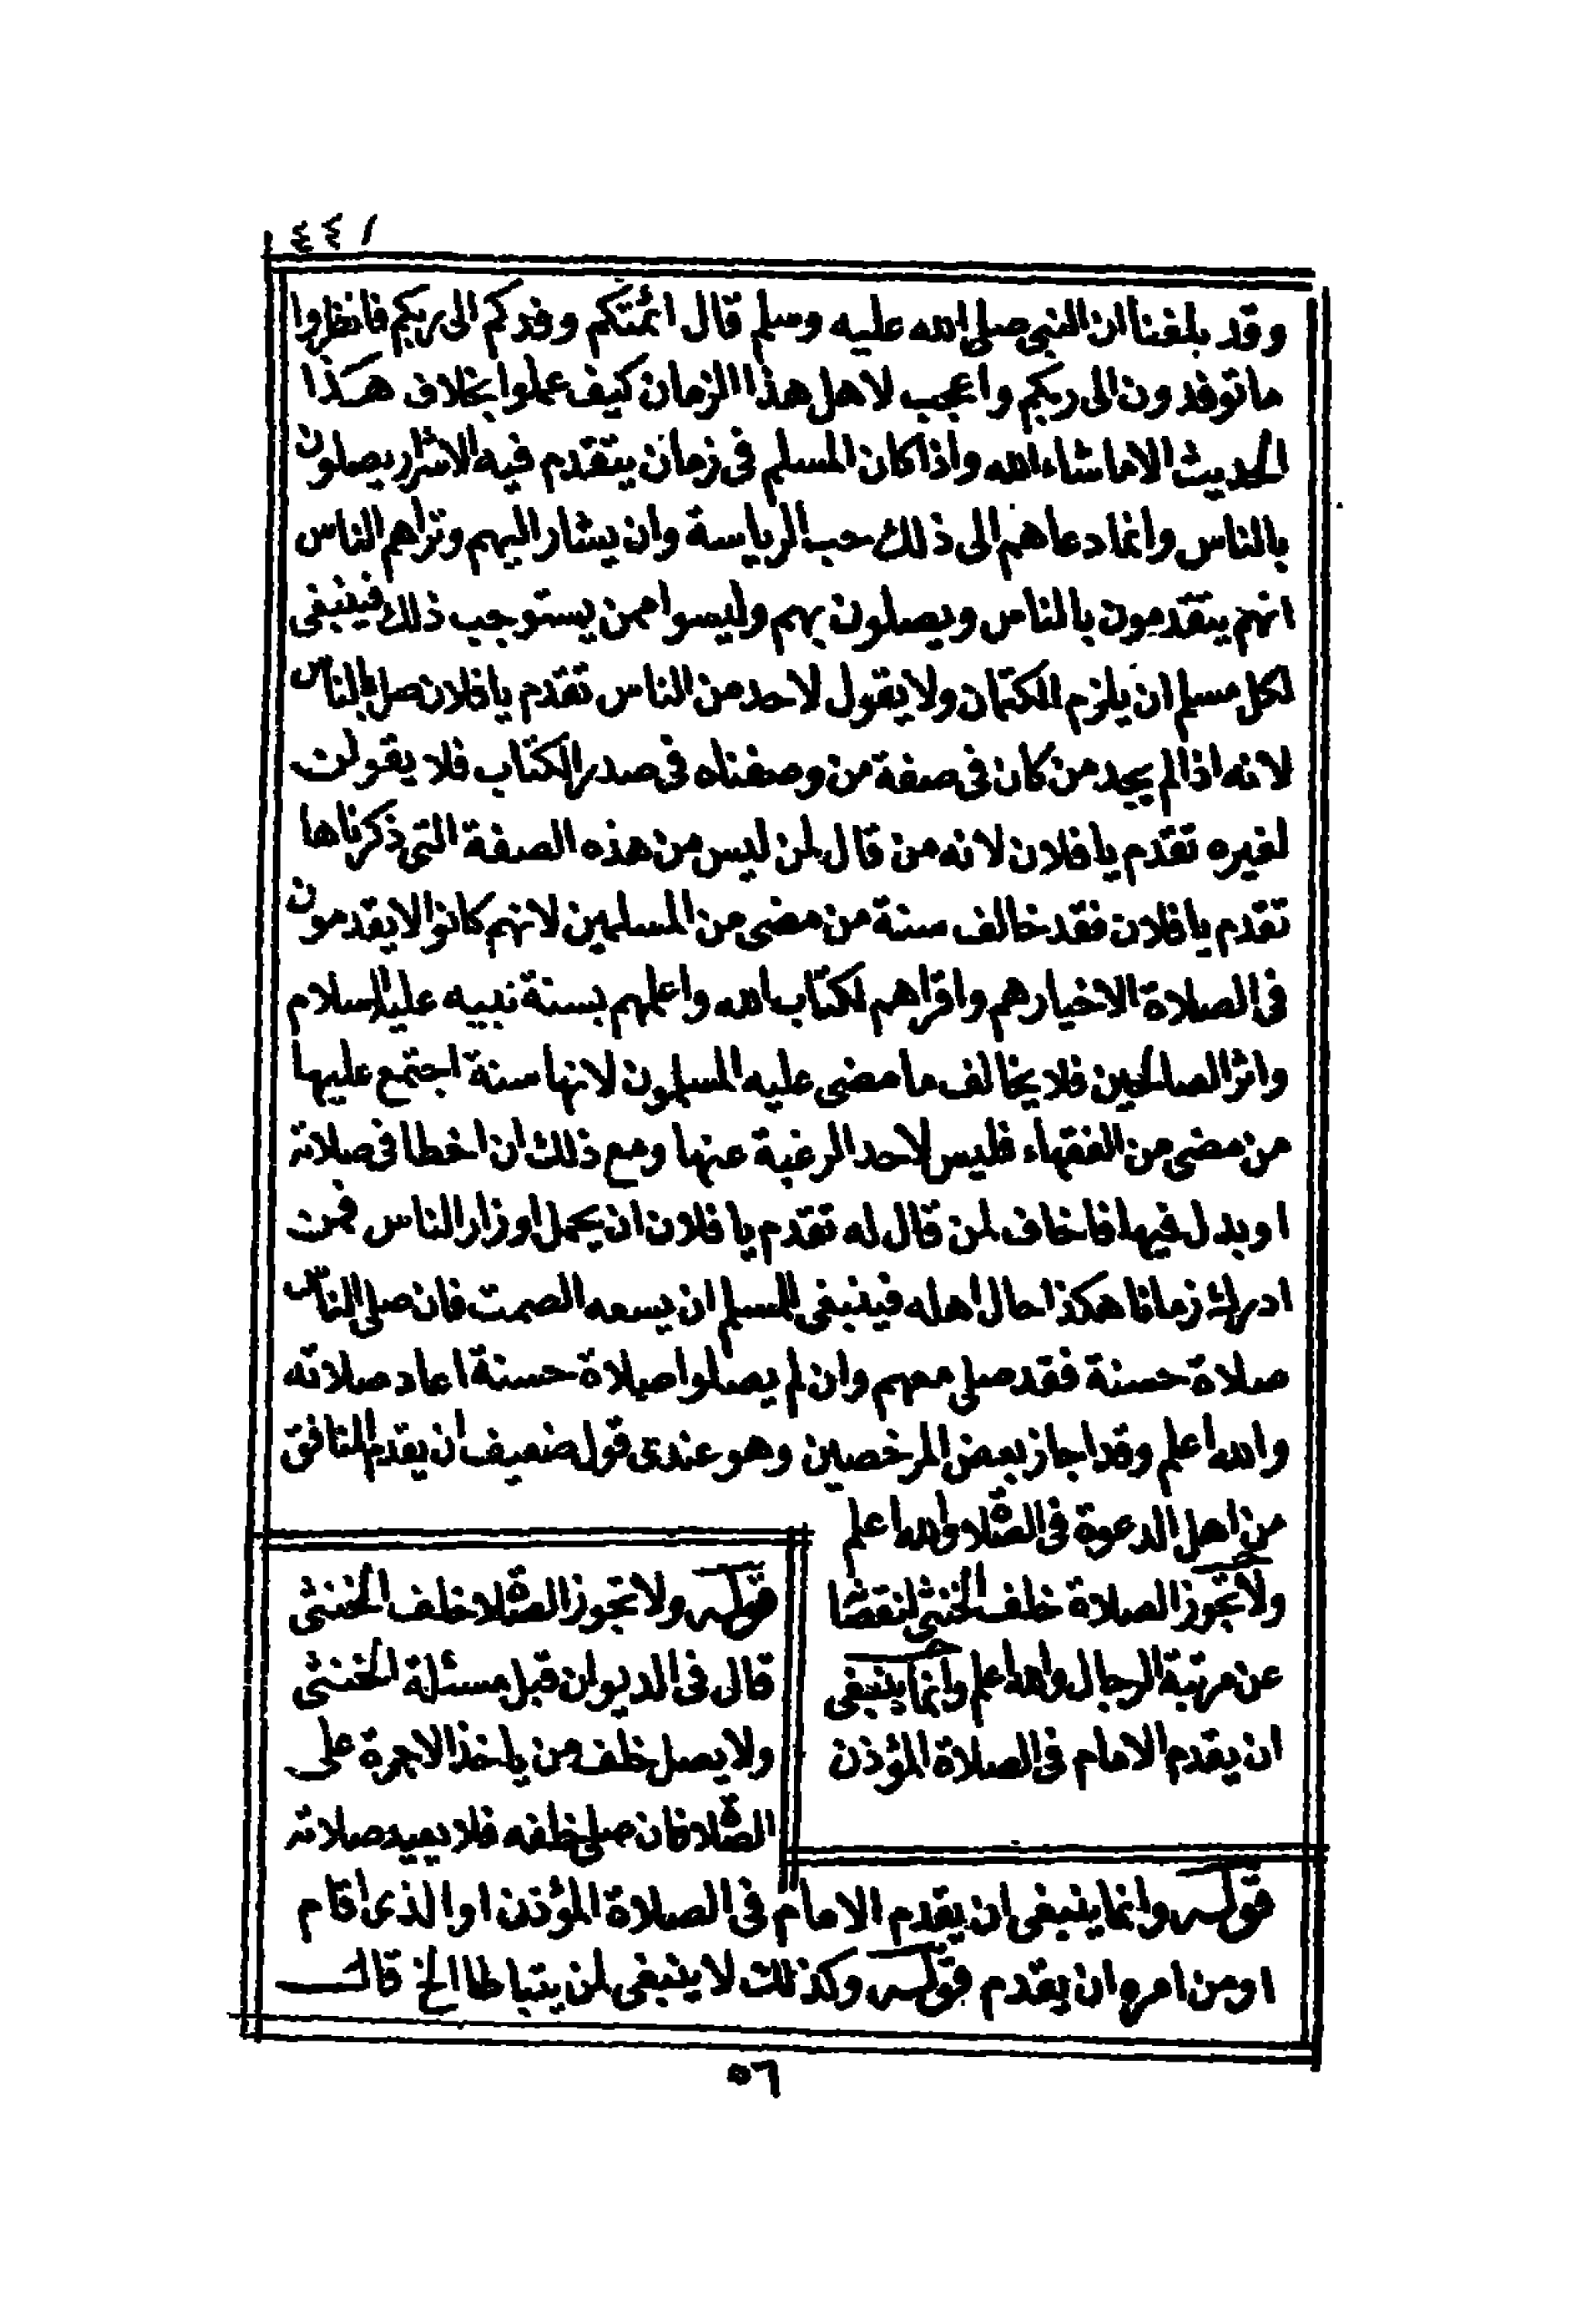 ٤٤١
وقد بلغنا ان النبي صلى الله عليه وسلم قال ائمتكم وفدكم الى ربكم فانظروا
ما توفدون الى ربكم واعجب لاهل هذا الزمان كيف عملوا بخلاف هكذا
الحديث الا ما شاء الله واذا كان المسلم في زمان يتقدم فيه الاشرار يصلون
بالناس وانما دعاهم الى ذلك حب الرياسة وان يشار اليهم وتراهم الناس
انهم يتقدمون بالناس ويصلون بهم وليسوا ممن يستوجب ذلك فينبغي
لكل مسلم ان يلزم الكتمان ولا يقول لاحد من الناس تقدم يا فلان صل بالناس
لانه اذا لم يجد من كان في صفة من وصفناه في صدر الكتاب فلا يقولن
لغيره تقدم يا فلان لانه من قال لمن ليس من هذه الصفة التي ذكرناها
تقدم يا فلان فقد خالف سنة من مضى من المسلمين لانهم كانوا لا يقدمون
في الصلاة الا خيارهم واقراهم لكتاب الله واعلمهم بسنة نبيه عليه السلام
واثر الصالحين فلا يخالف ما مضى عليه المسلمون لانها سنة اجتمع عليها
من مضى من الفقهاء فليس لاحد الرغبة عنها ومع ذلك ان اخطا في صلاته
او بدل فيها فاخاف لمن قال له تقدم يا فلان ان يحمل اوزار الناس فمن
ادرك زمانا هكذا حال اهله فينبغي للمسلم ان يسعه الصمت فان صلى الناس
صلاة حسنة فقد صلى معهم وان لم يصلوا صلاة حسنة اعاد صلاته
والله اعلم وقد اجاز بعض المرخصين وهو عندى قول ضعيف ان يقدم المنافق
من اهل الدعوة في الصلاة والله اعلم
ولا تجوز الصلاة خلف الخنثى لنقصها
عن مرتبة الرجال والله اعلم وانما ينبغي
ان يقدم الامام في الصلاة المؤذن
قوله ولا تجوز الصلاة خلف الخنثى
قال في الديوان قبل مسئلة الخنثى
ولا يصل خلف من ياخذ الاجرة على
الصلاة فان صلى خلفه فلا يعيد صلاته
قوله وانما ينبغي ان يقدم الامام في الصلاة المؤذن او الذي اقام
او من امره ان يقدم قوله وكذلك لا ينبغي لمن يتباطا الخ قال
٥٦